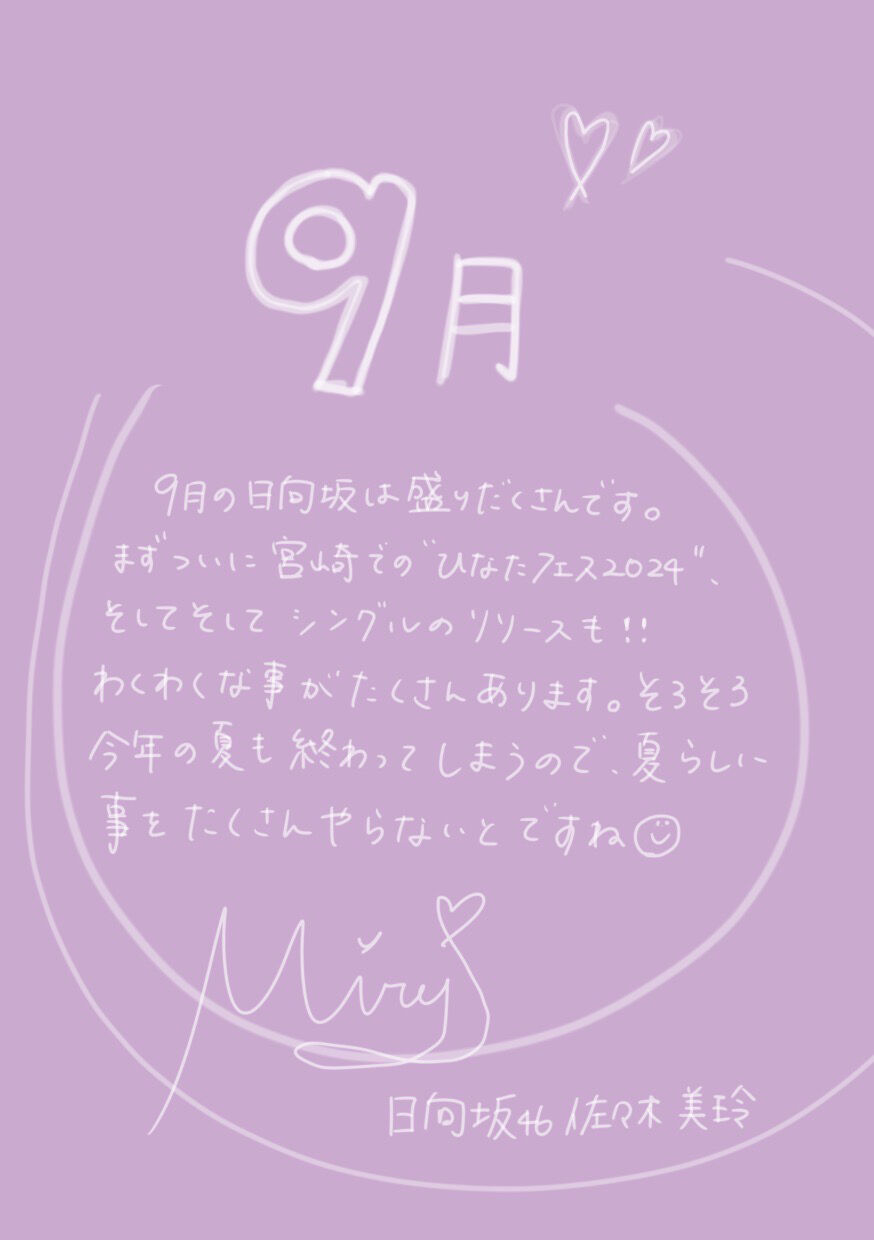 9月
9月の日向坂は盛りだくさんです。
まずついに宮崎での"ひなたフェス2024"、
そしてそして シングルのリリースも!!
わくわくな事がたくさんあります。そろそろ
今年の夏も終わってしまうので、夏らしい
事をたくさんやらないとですね
Mirei
日向坂46 佐々木美玲